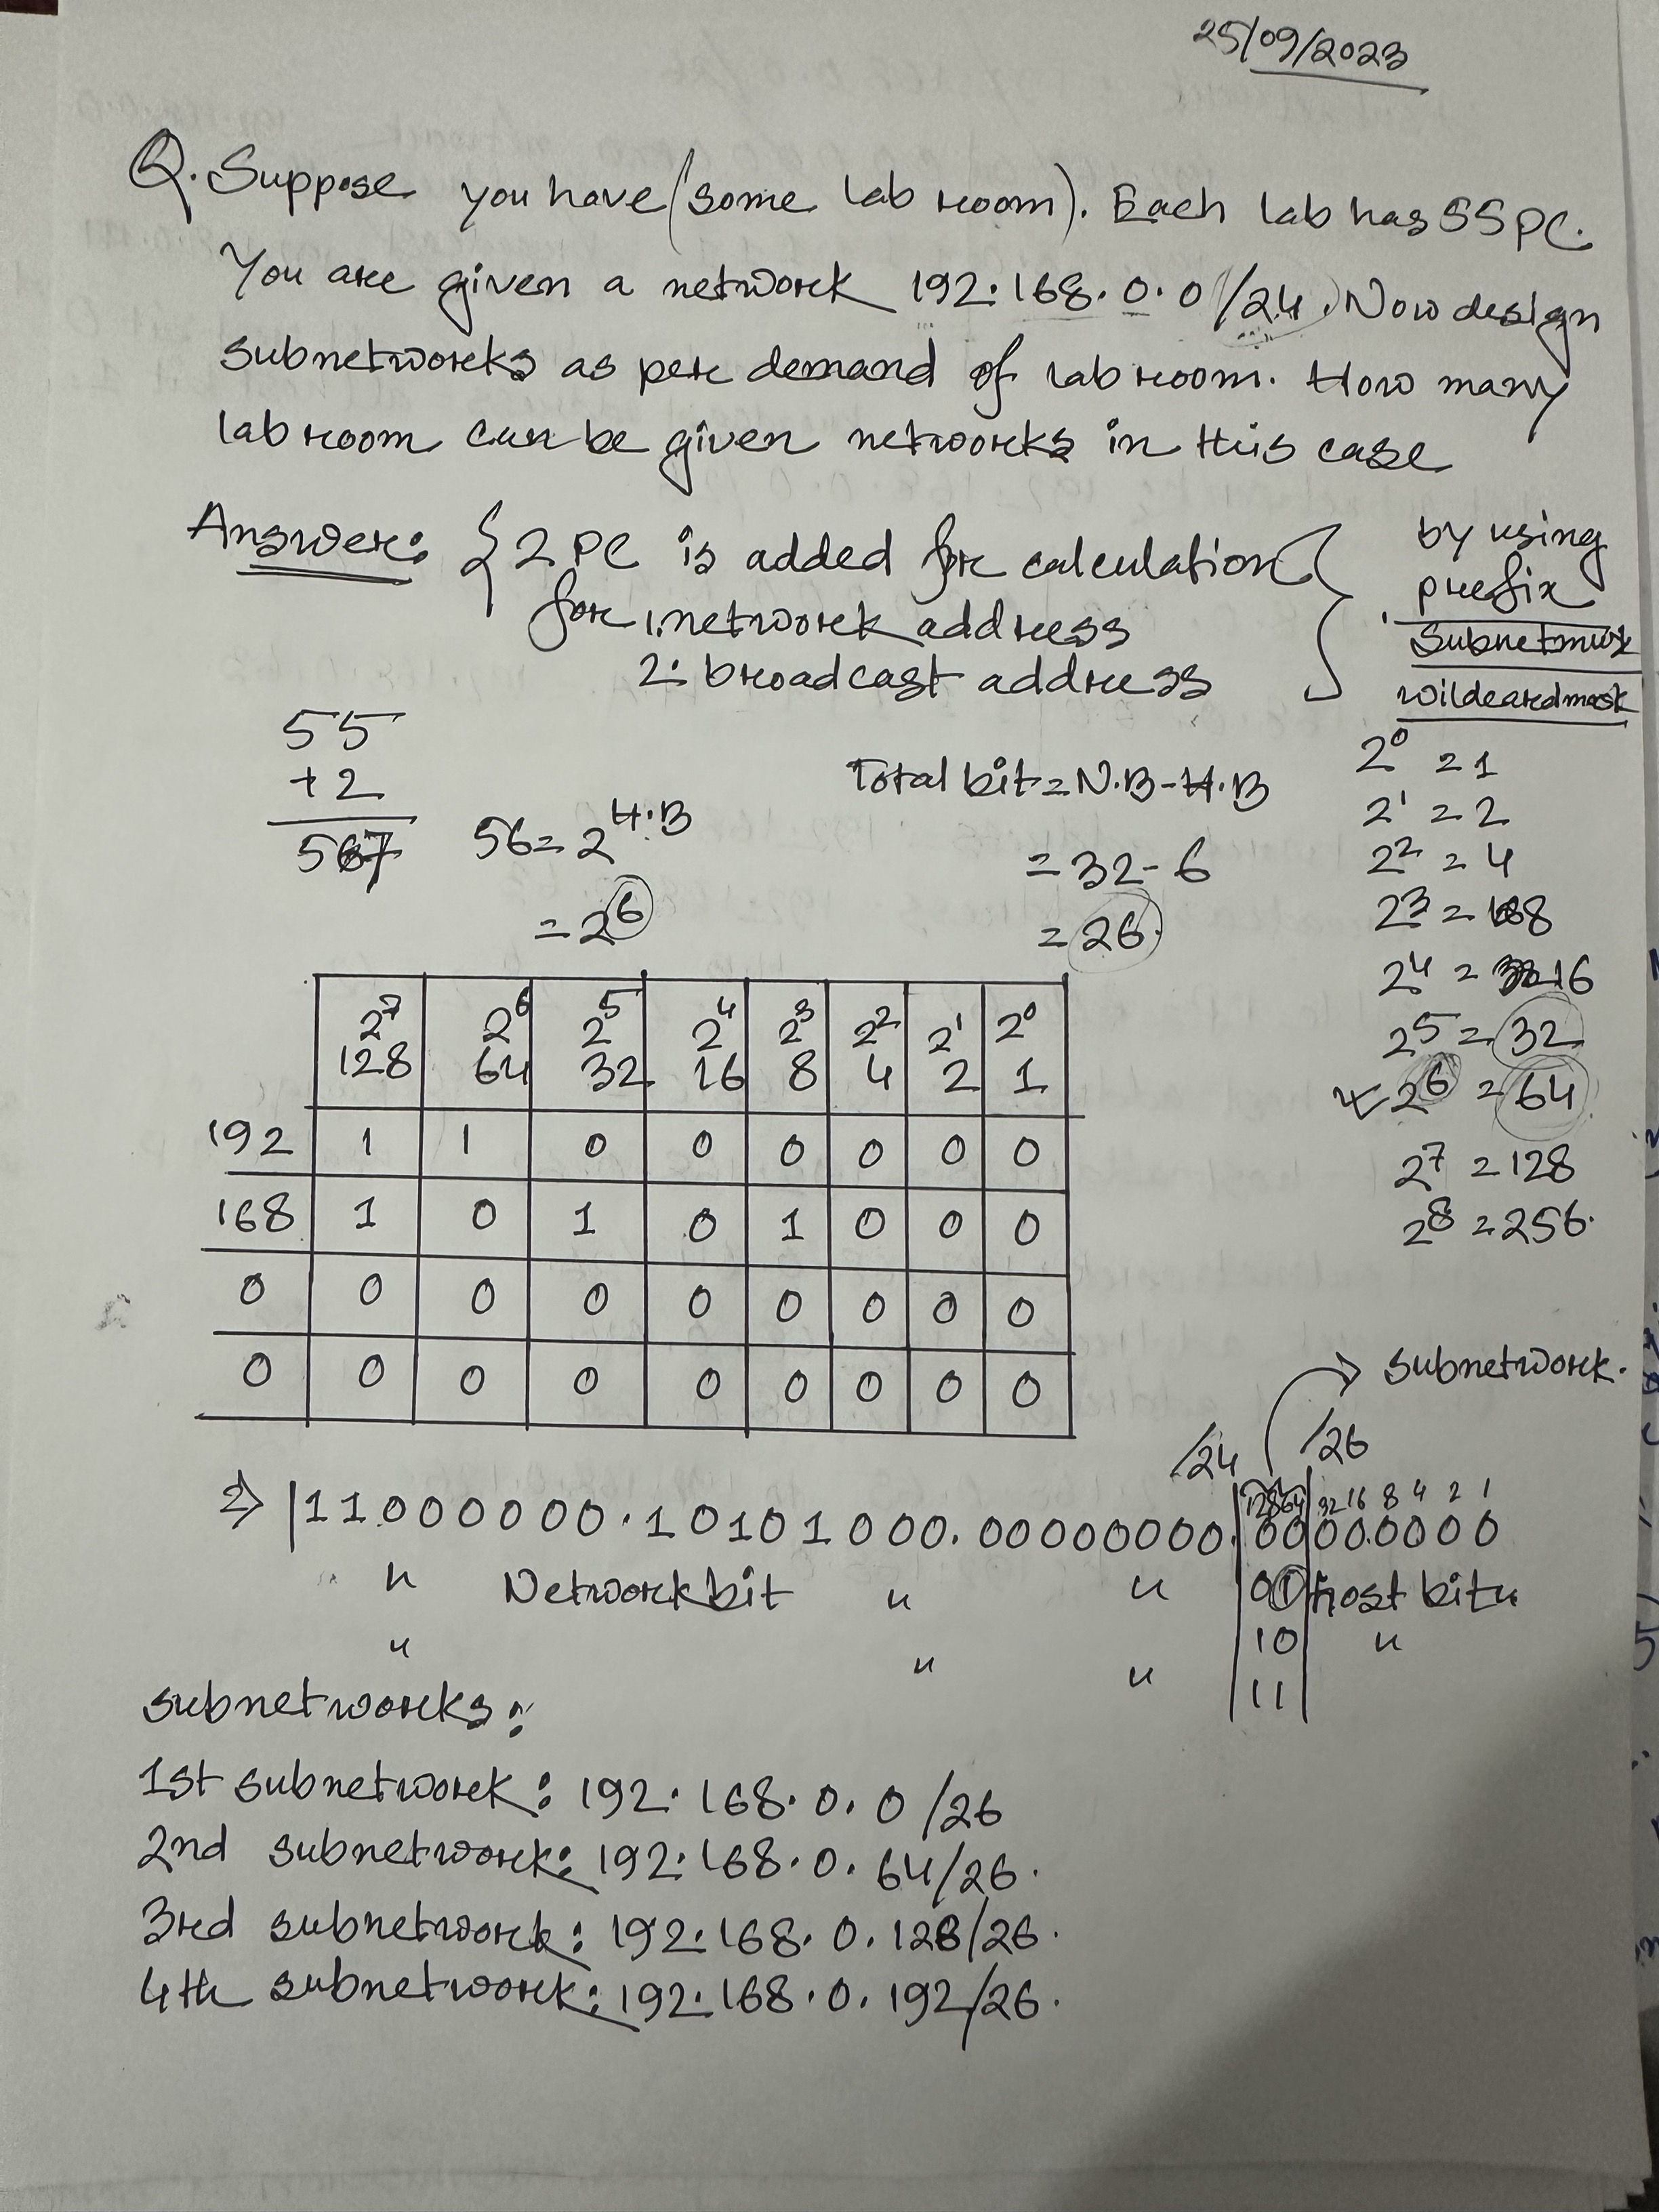 25/09/2023
Q. Suppose you have (some lab room). Each lab has 55 PC.
You are given a network 192.168.0.0/24. Now design
subnetworks as per demand of lab room. How many
lab room can be given networks in this case
Answer: {2 PC is added for calculation
for 1. network address
2. broadcast address }
by using
prefix
Subnetmusk
wildcardmask
55
+2
57
56 = 2^H.B
= 2^6
Total bit = N.B - H.B
= 32 - 6
= 26.
2^0 = 1
2^1 = 2
2^2 = 4
2^3 = 8
2^4 = 16
2^5 = 32
2^6 = 64
2^7 = 128
2^8 = 256.
2^7 2^6 2^5 2^4 2^3 2^2 2^1 2^0
128 64 32 16 8 4 2 1
192 1 1 0 0 0 0 0 0
168 1 0 1 0 1 0 0 0
0 0 0 0 0 0 0 0 0
0 0 0 0 0 0 0 0 0
subnetwork.
/24 /26
128 64 32 16 8 4 2 1
=> |11000000.10101000.00000000.|00|000000
" Network bit " " |01| host bit "
" " " |10| "
|11|
subnetworks:
1st subnetwork: 192.168.0.0/26
2nd subnetwork: 192.168.0.64/26.
3rd subnetwork: 192.168.0.128/26.
4th subnetwork: 192.168.0.192/26.